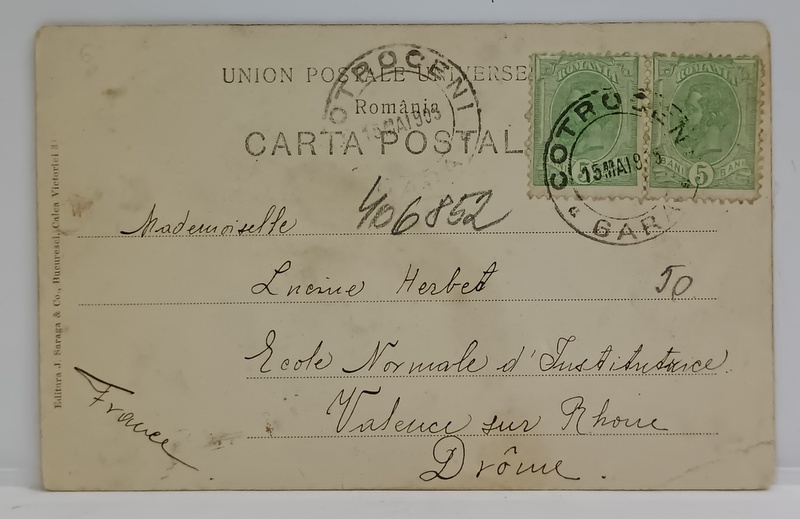 UNION POSTALE UNIVERSE
România
CARTA POSTAL
COTROCENI
15 MAI 903
COTROCENI
15 MAI 9
GARA
ROMANIA
5
BANI
ROMANIA
BANI 5 BANI
Mademoiselle
406852
Lucine Herbet
50
Ecole Normale d'Institutrice
Valence sur Rhone
Drôme.
France
Editura J. Saraga & Co., Bucuresci, Calea Victoriei